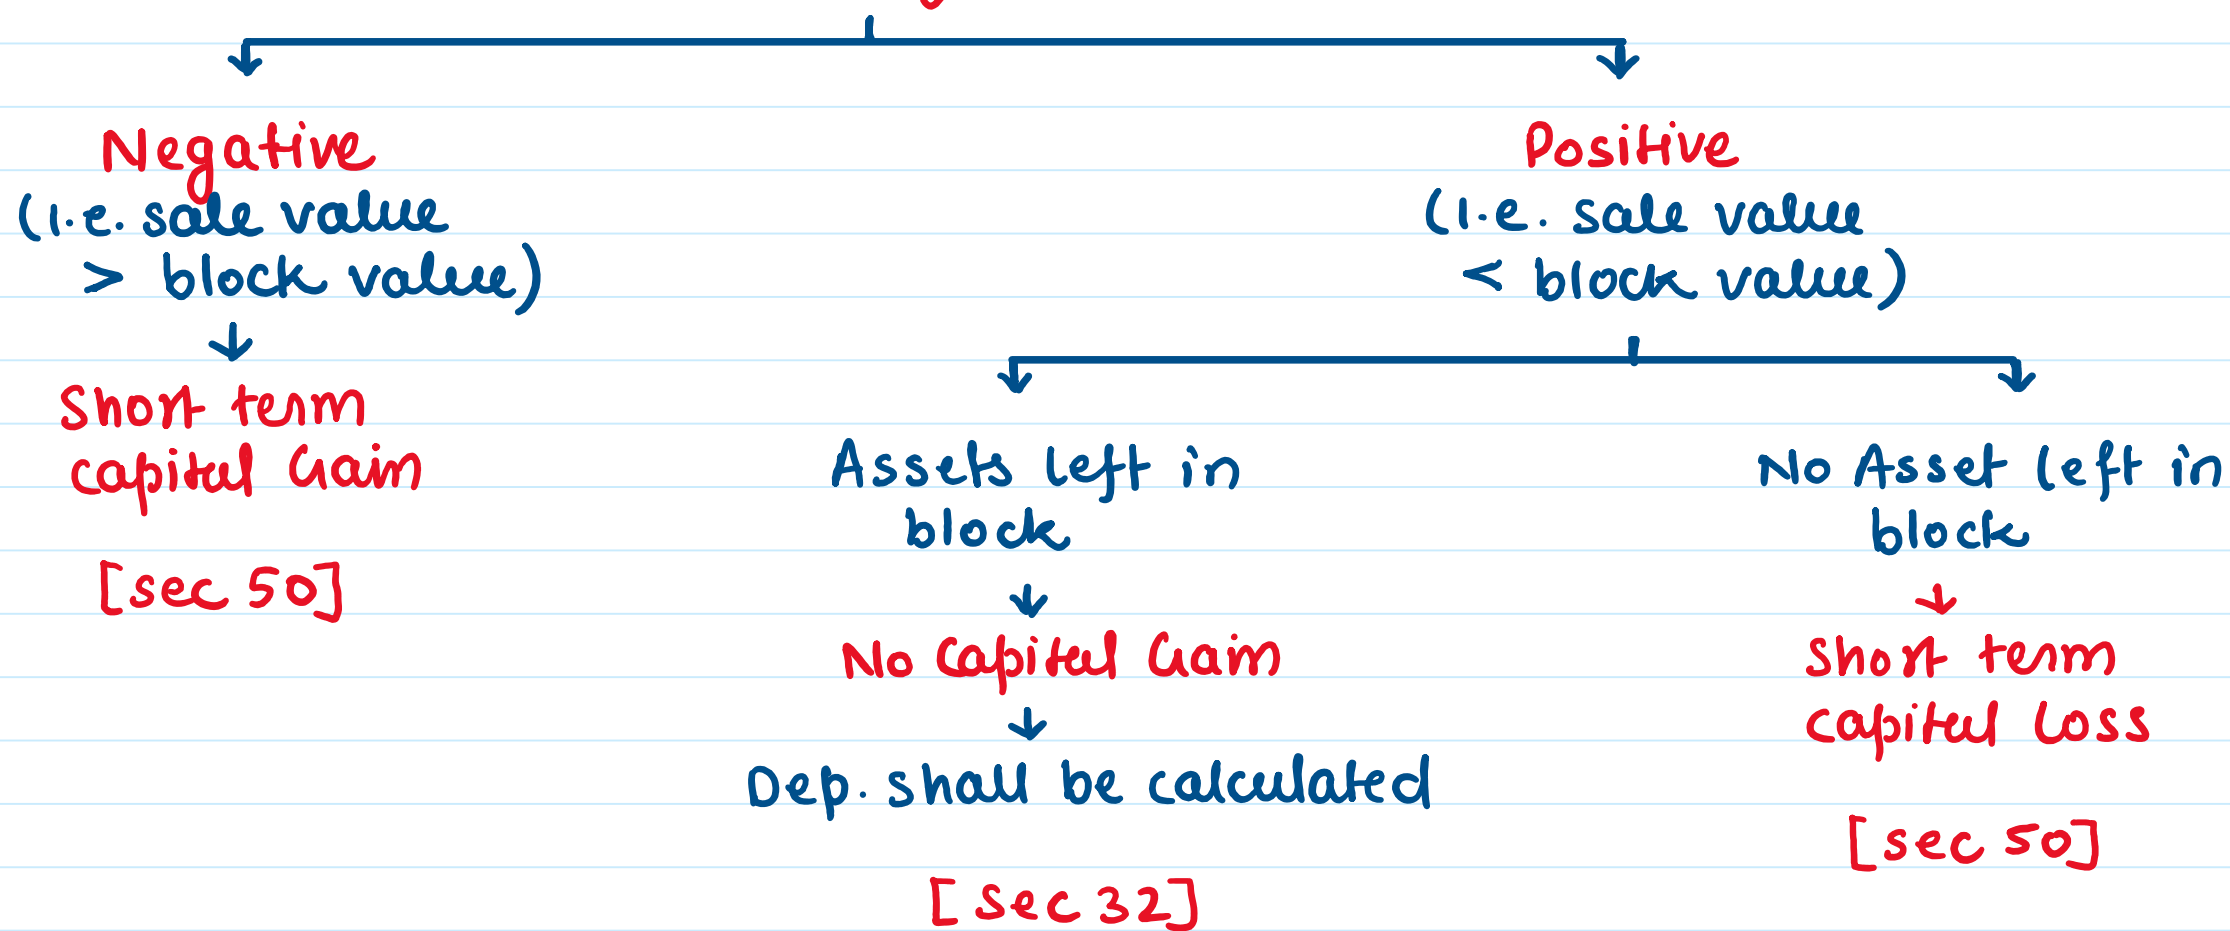 Negative
(i.e. sale value
> block value)
Short term
capital Gain
[sec 50]
Positive
(i.e. sale value
< block value)
Assets left in
block
No Capital Gain
Dep. shall be calculated
[sec 32]
No Asset left in
block
Short term
capital loss
[sec 50]